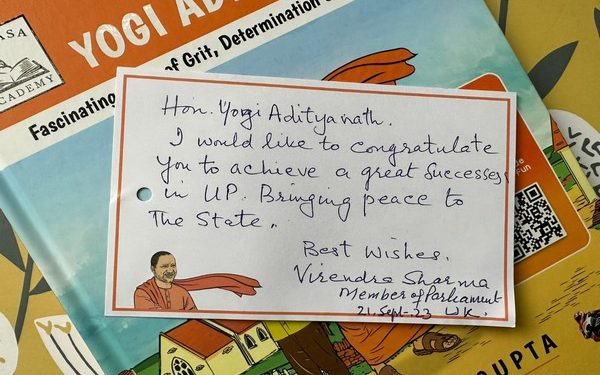 ASA
ACADEMY
YOGI AD
Fascinating
of Grit, Determination
Hon. Yogi Adityanath.
I would like to congratulate
you to achieve a great Successes
in UP. Bringing peace to
The State.
Best Wishes.
Virendra Sharma
Member of Parliament
21. Sept-23 UK.
Fun
GUPTA